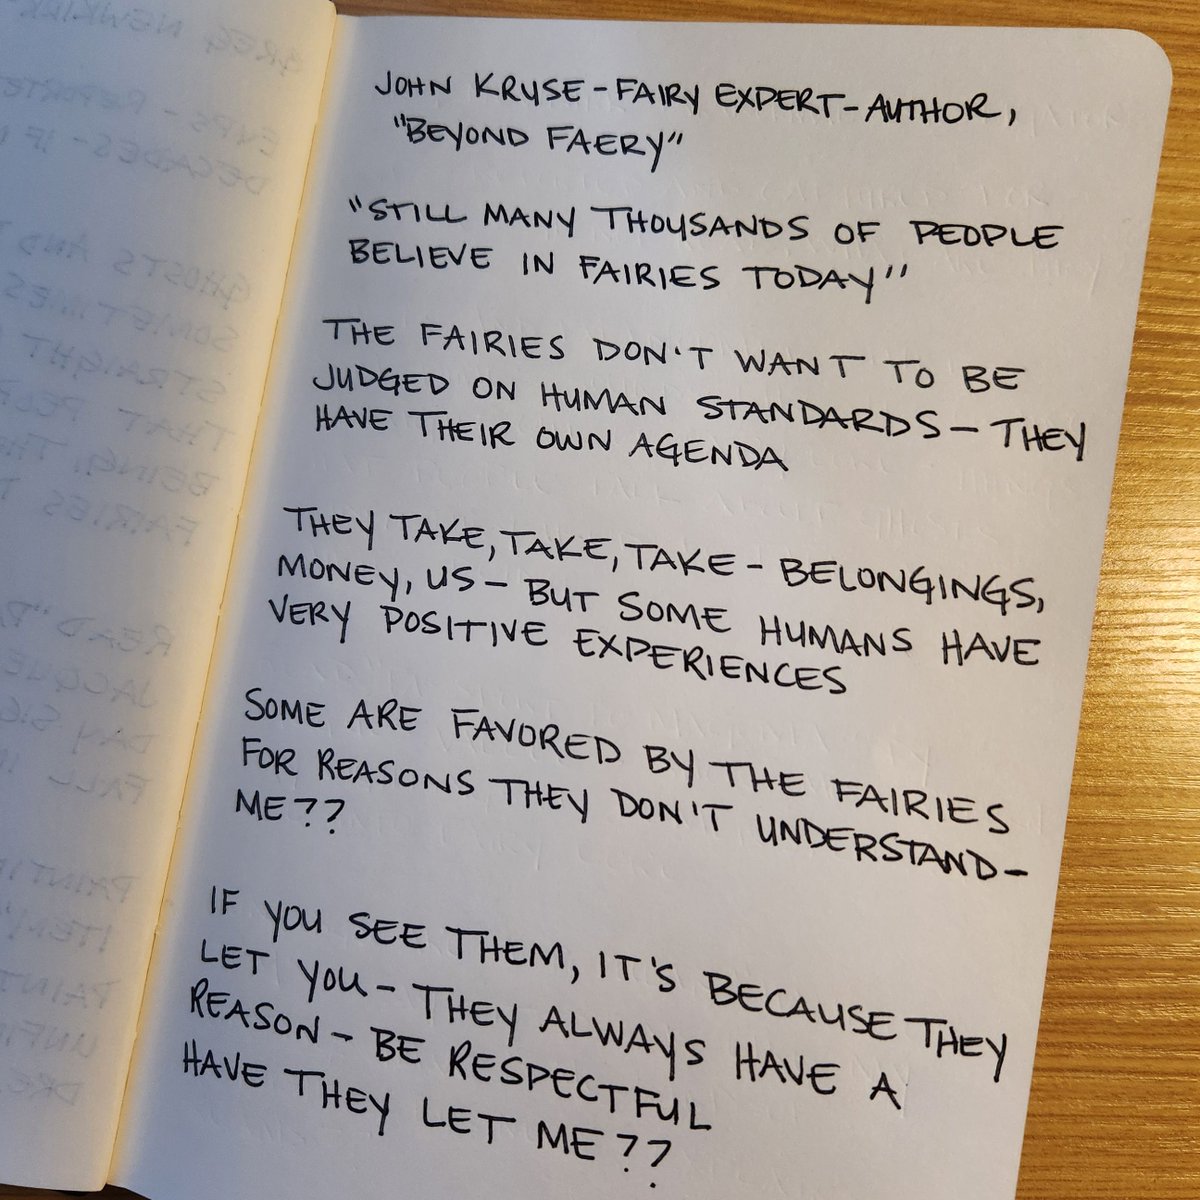 JOHN KRUSE - FAIRY EXPERT - AUTHOR,
"BEYOND FAERY"
"STILL MANY THOUSANDS OF PEOPLE
BELIEVE IN FAIRIES TODAY"
THE FAIRIES DON'T WANT TO BE
JUDGED ON HUMAN STANDARDS - THEY
HAVE THEIR OWN AGENDA
THEY TAKE, TAKE, TAKE - BELONGINGS,
MONEY, US - BUT SOME HUMANS HAVE
VERY POSITIVE EXPERIENCES
SOME ARE FAVORED BY THE FAIRIES
FOR REASONS THEY DON'T UNDERSTAND -
ME??
IF YOU SEE THEM, IT'S BECAUSE THEY
LET YOU - THEY ALWAYS HAVE A
REASON - BE RESPECTFUL
HAVE THEY LET ME??